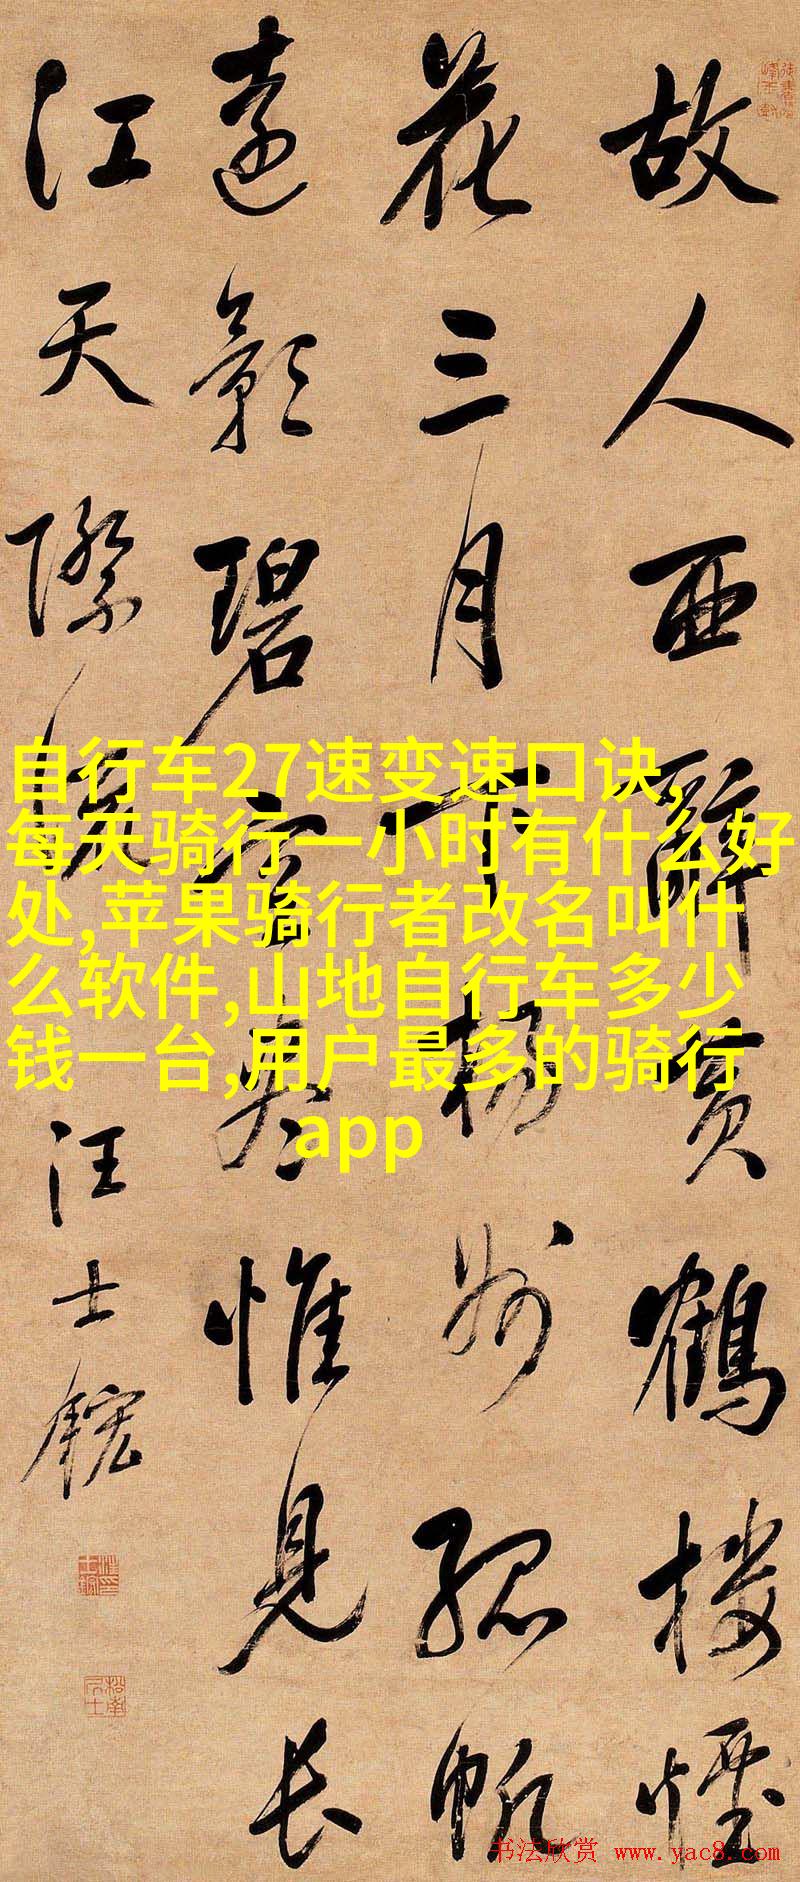 故人西辭黃鶴樓煙
花三月下楊州孤帆
遠影碧空尽惟見長
江天際流
汪士鋐
自行车27速变速口诀,
每天骑行一小时有什么好
处,苹果骑行者改名叫什
么软件,山地自行车多少
钱一台,用户最多的骑行
app
书法欣赏 www.yac8.com